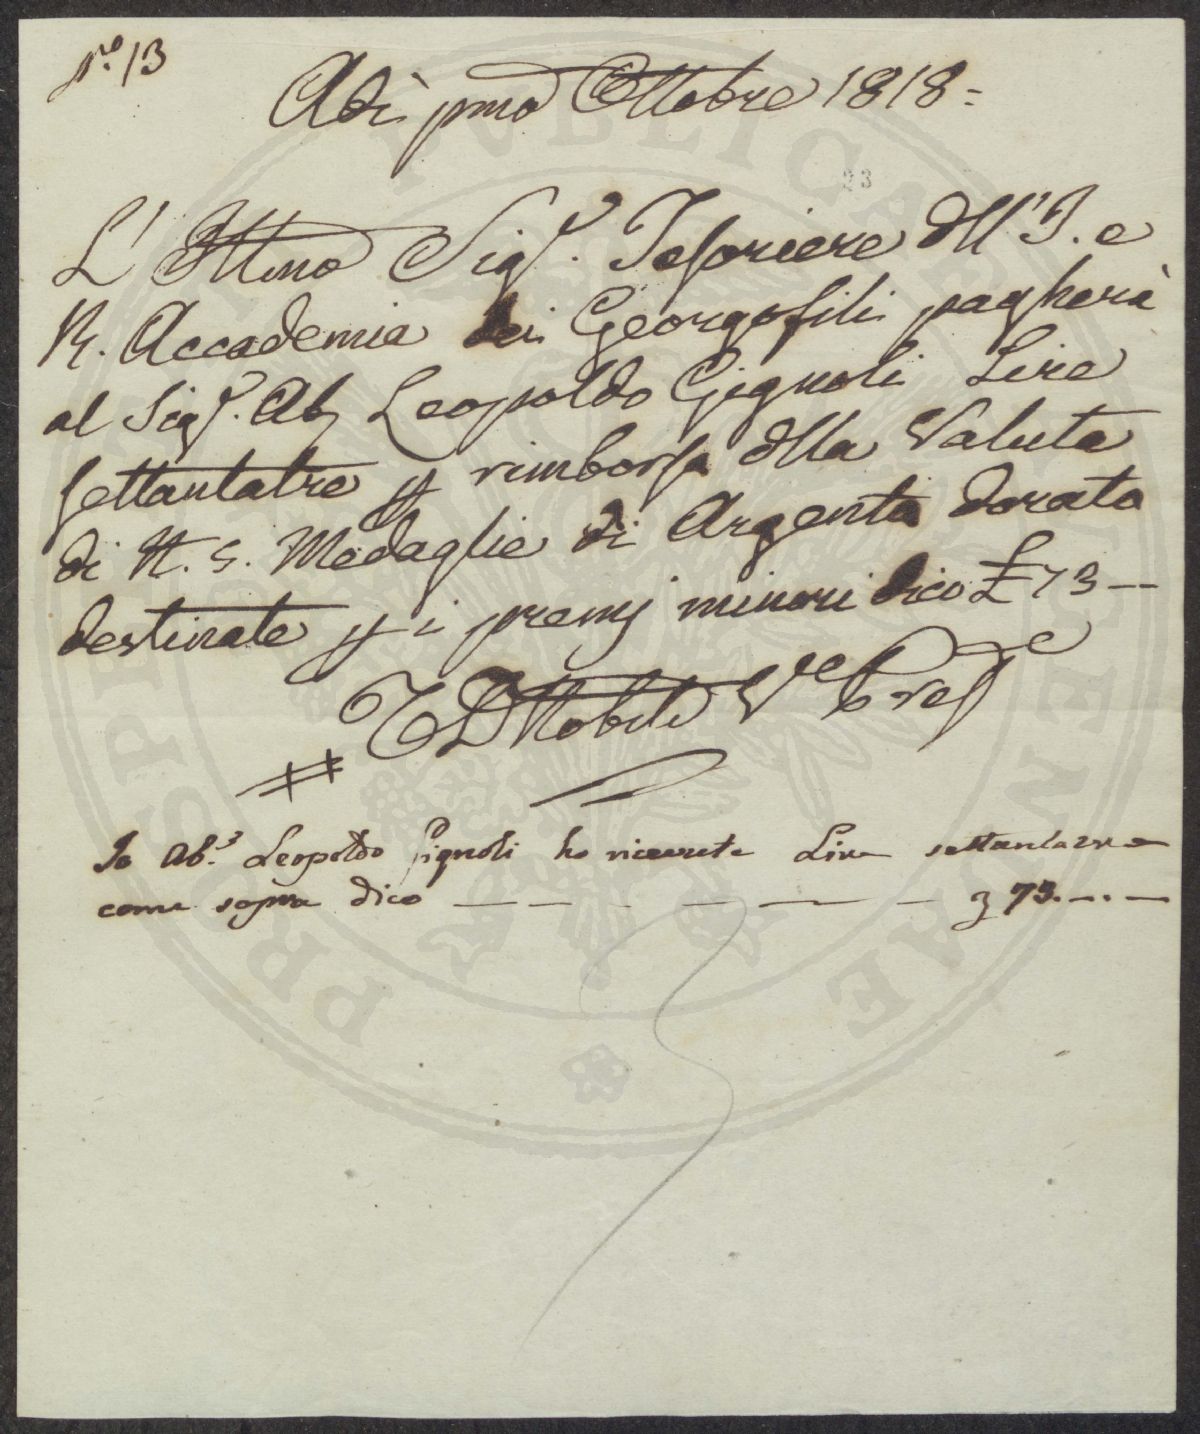 N.o 13
Adì pmo Ottobre 1818 =
23
L' Illmo Sig.r Tesoriere dll' I. e
R. Accademia dei Georgofili pagherà
al Sig.r Ab. Leopoldo Gignoli Lire
settantatre p rimborso dlla Valuta
di N. 5. Medaglie di Argento dorato
destinate p i premj minori dico £ 73 —
Nobili V.e Pres.e
Io Ab.e Leopoldo Gignoli ho ricevute Lire settantatre
come sopra dico — — — — — — 73. — . —
PUBLICAE FLORENTINAE PROSPERITATI